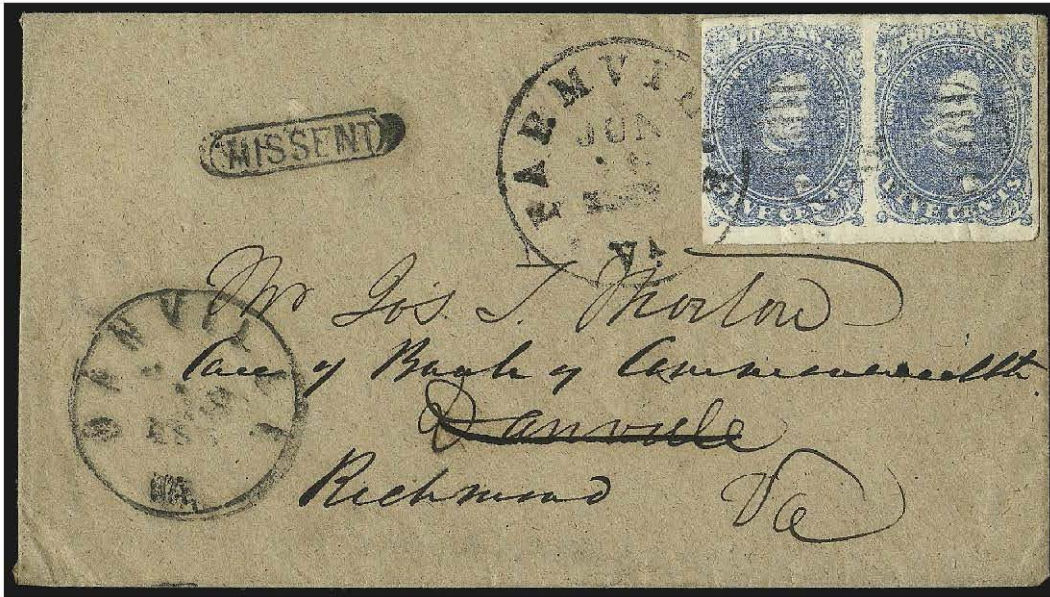 MISSENT
FARMVILLE
JUN
VA
POSTAGE
FIVE CENTS
POSTAGE
FIVE CENTS
Mr Jos. J. Morton
Care of Bank of Commonwealth
Danville
Richmond Va
DANVILLE
VA.